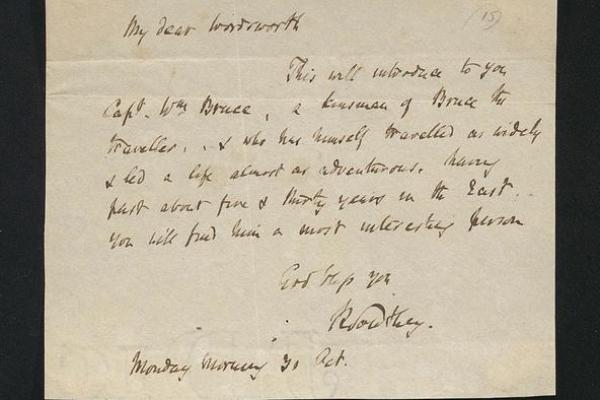 (15)
My dear Wordsworth
This will introduce to you
Capt. Wm Bruce, a kinsman of Bruce the
traveller.. & who has himself travelled as widely
& led a life almost as adventurous. having
past about five & thirty years in the East..
You will find him a most interesting person
God bless you
R Southey.
Monday morning 31 Oct.